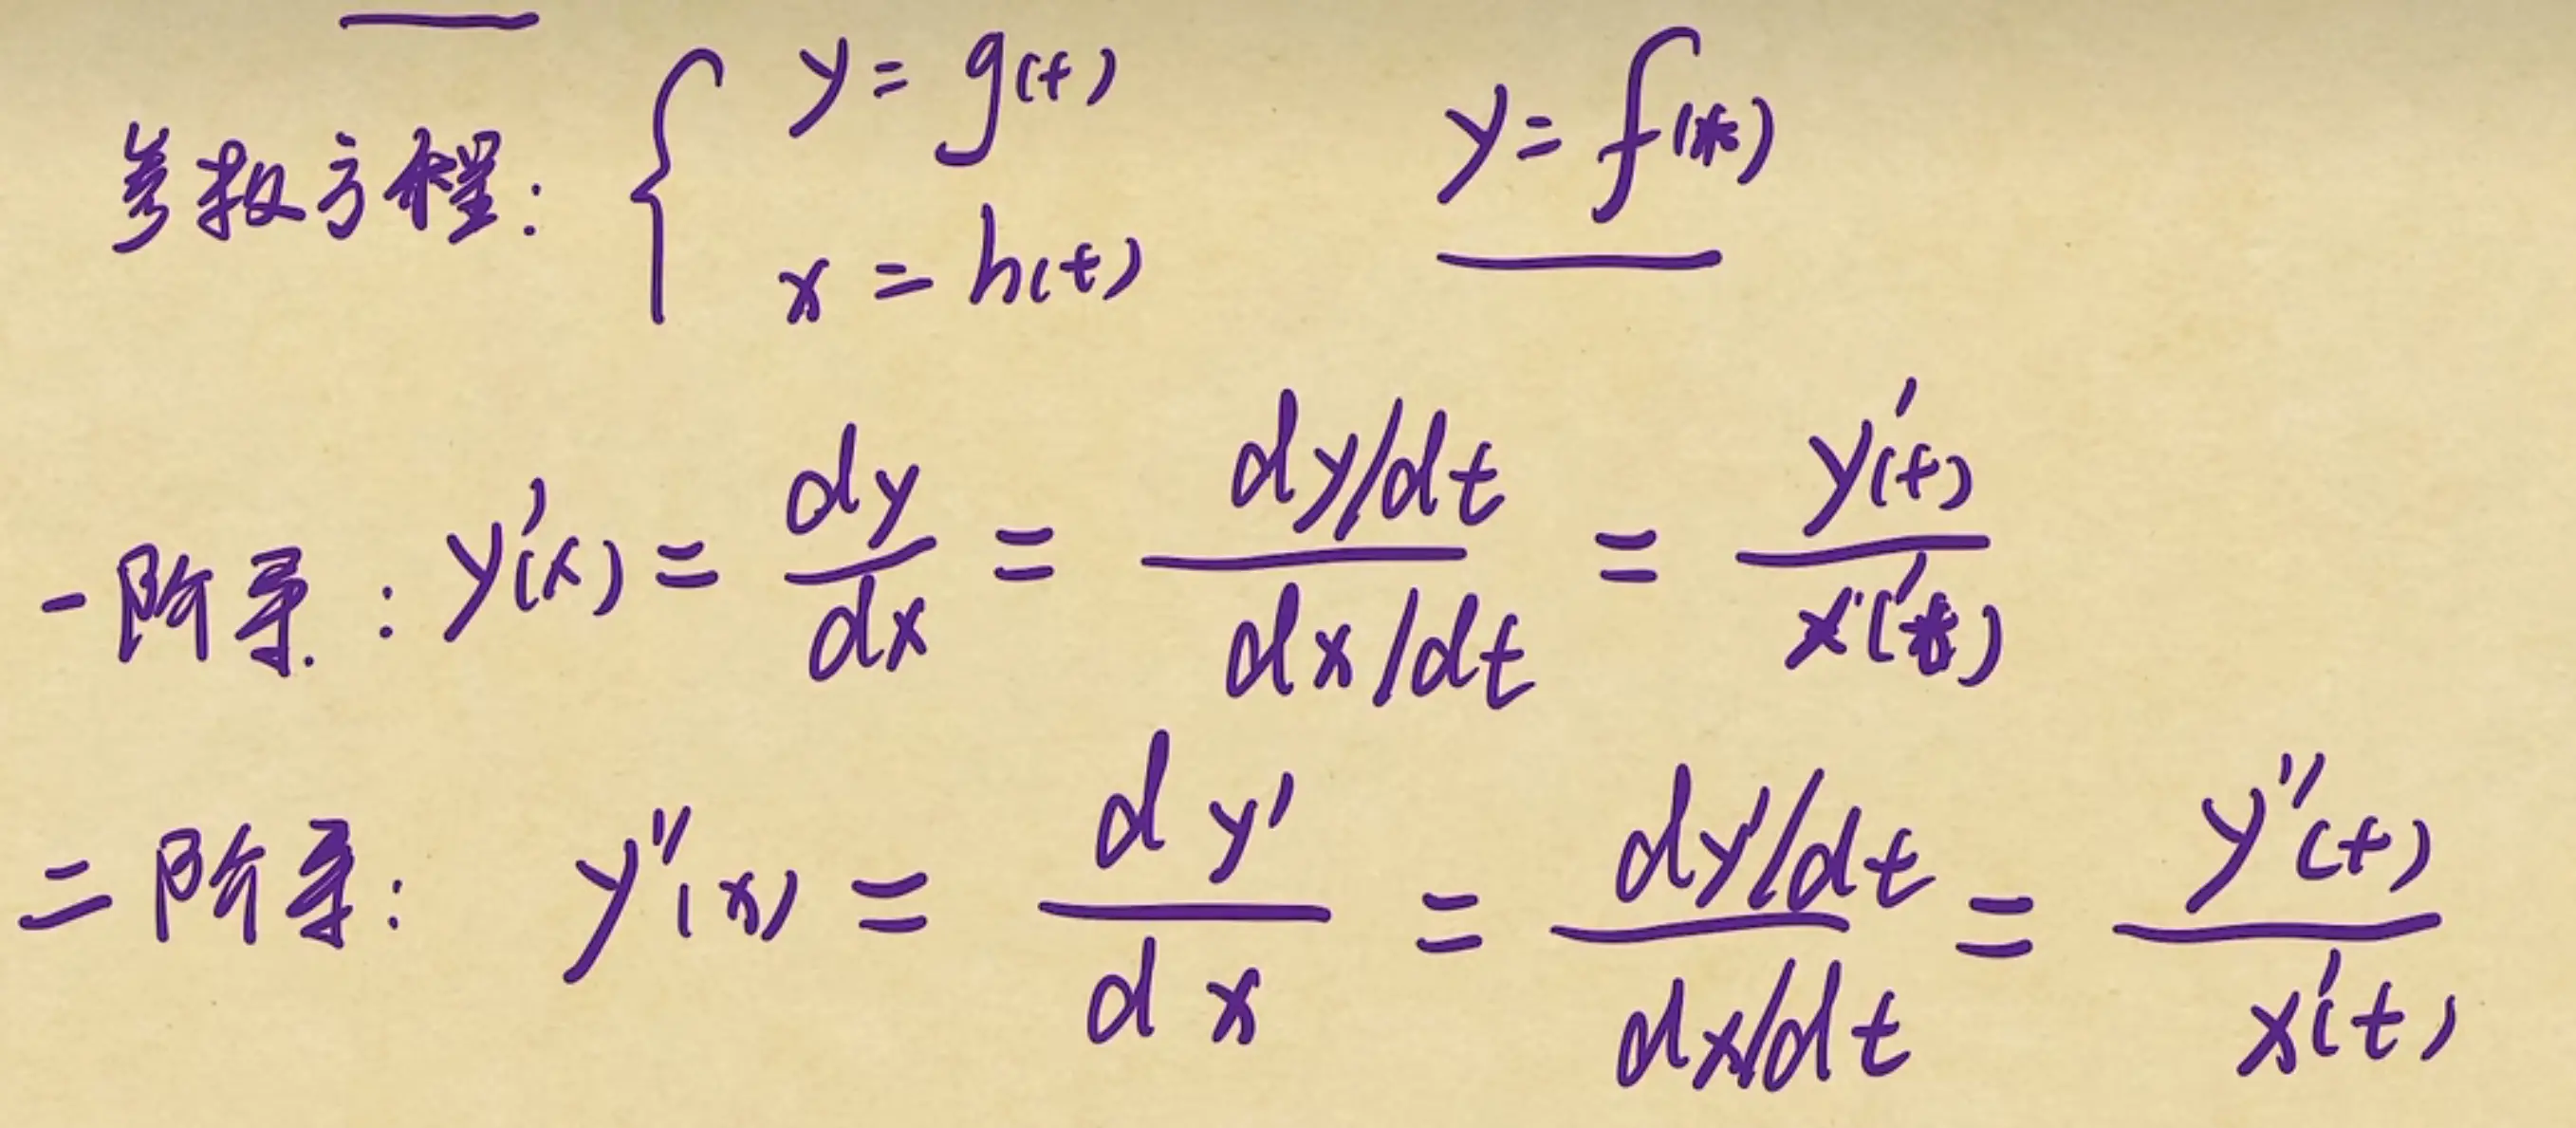 参数方程: { y = g(t) y = f(x)
x = h(t)
一阶导: y'(x) = dy/dx = (dy/dt)/(dx/dt) = y'(t)/x'(t)
二阶导: y''(x) = dy'/dx = (dy'/dt)/(dx/dt) = y''(t)/x'(t)